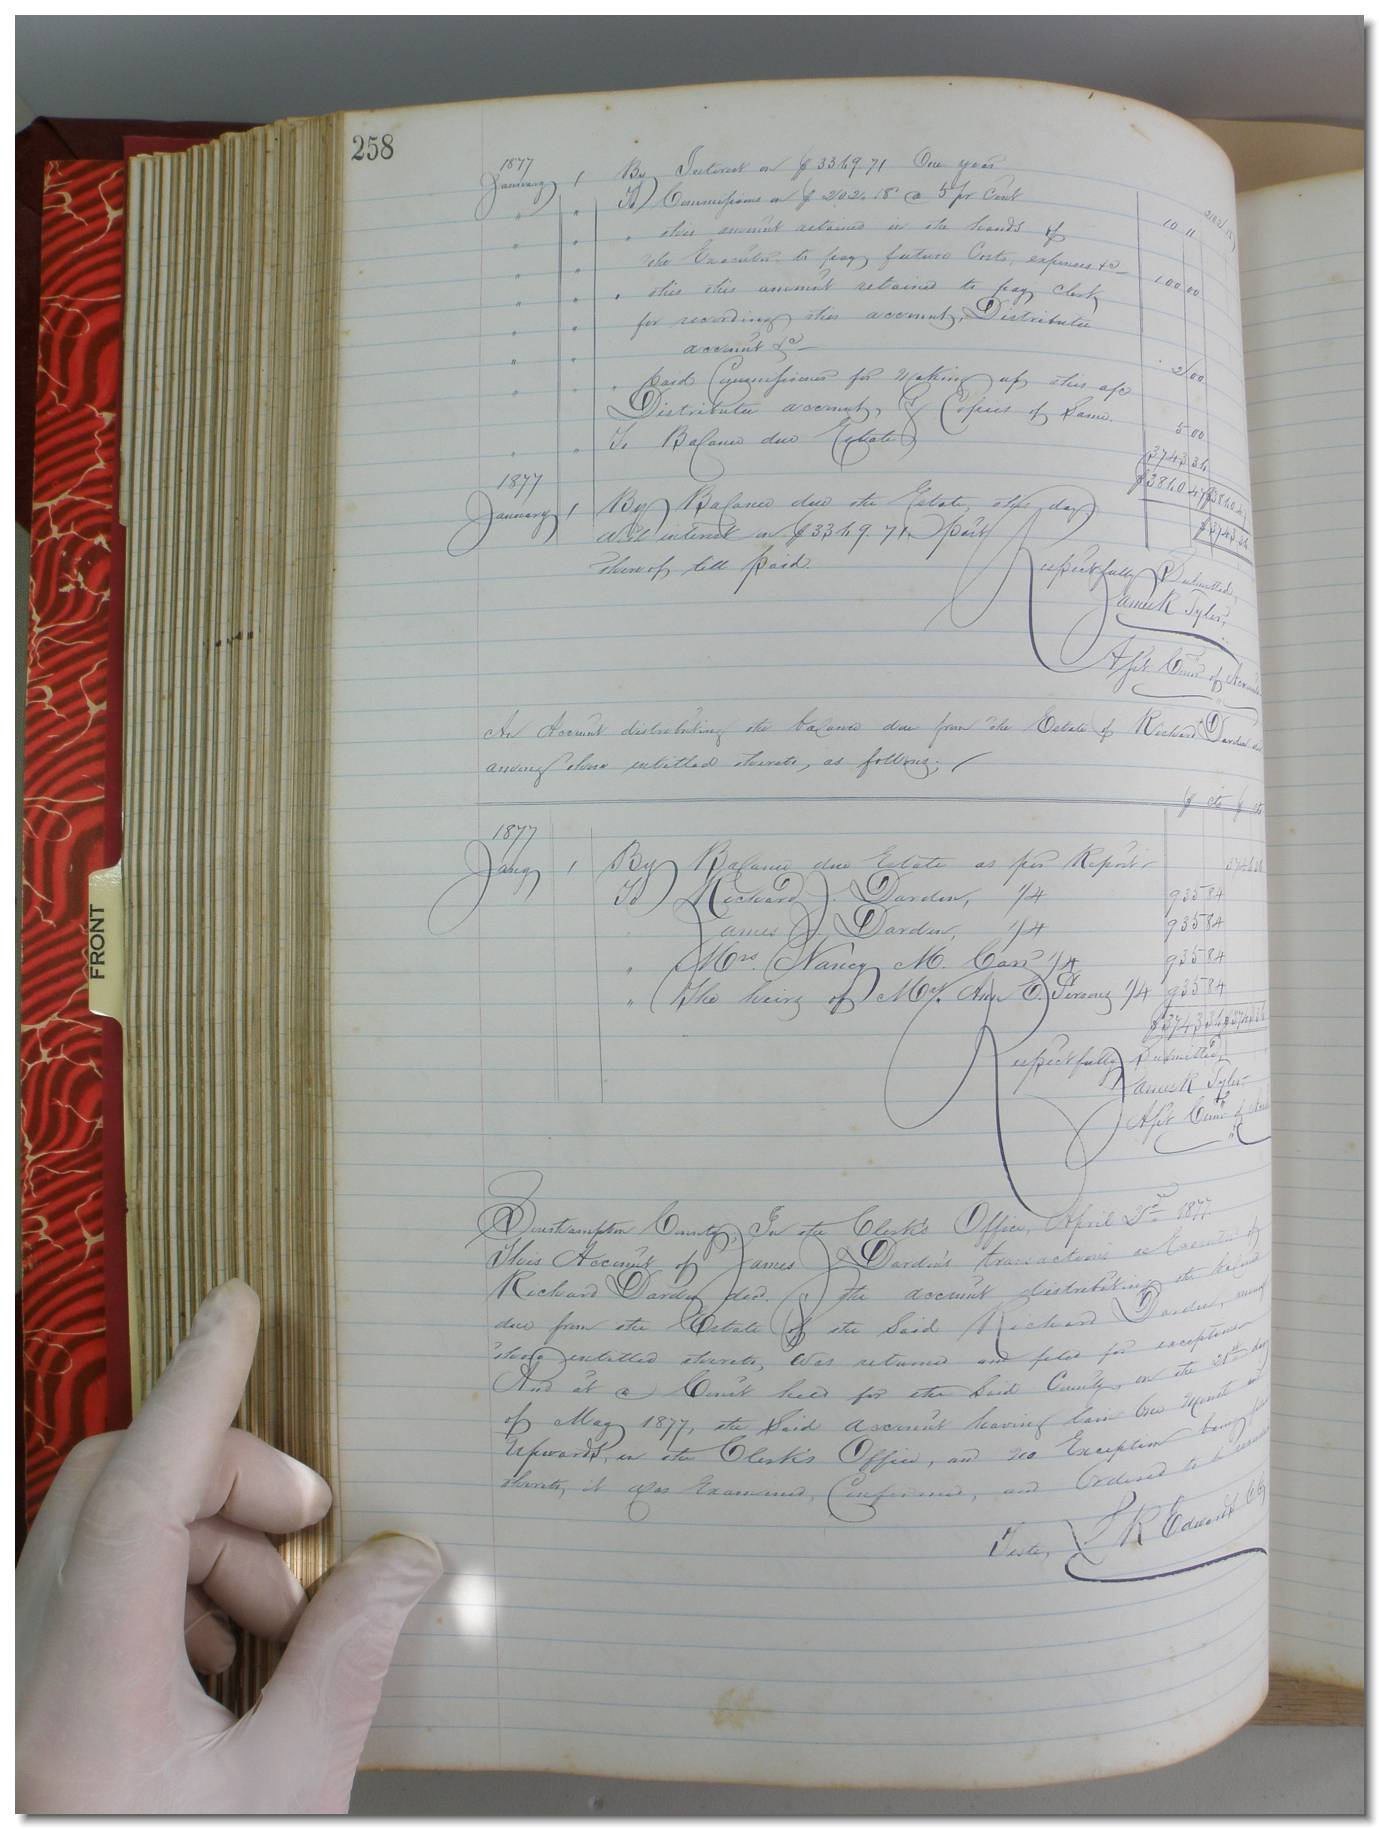 258
1877
January 1 By Interest on $3369.71 One year 202.18
" " To Commissions on $202.18 @ 5 pr Cent 10 11
" " " this amount retained in the hands of
" " the Executor to pay future Costs, expenses &c 100.00
" " " this this amount retained to pay clerk
" " for recording this account, Distributive
" " account &c 2 00
" " " paid Commissioner for Making up this a/c
Distributive account, & Copies of Same. 5 00
" " To Balance due Estate 3743 36
1877
January 1 By Balance due the Estate, this day, $3743.36
with interest on $3369.71, part
thereof till paid.
Respectfully Submitted,
James R Tyler,
Asst Comr of Accounts
An Account distributing the balance due from the Estate of Richard Darden dec
among those entitled thereto, as follows;
$ cts $ cts
1877
Jany 1 By Balance due Estate as per Report 3743 36
To Richard J. Darden, 1/4 935 84
" James J. Darden, 1/4 935 84
" Mrs. Nancy M. Carr 1/4 935 84
" The heirs of Mrs. Ann E. Persons 1/4 935 84
$3743 36 $3743 36
Respectfully Submitted,
James R Tyler
Asst Comr of
Southampton County, In the Clerk's Office, April 21st 1877.
This Account of James J. Darden's transactions as Executor of
Richard Darden dec. & the account distributing the balance
due from the Estate of the Said Richard Darden, among
those entitled thereto, was returned and filed for exceptions
And at a Court held for the Said County, on the 21st day
of May 1877, the Said account having lain One Month and
Upwards, in the Clerk's Office, and no Exception being filed
thereto, it was Examined, Confirmed, and Ordered to be recorded
Teste, L R Edwards CC
FRONT